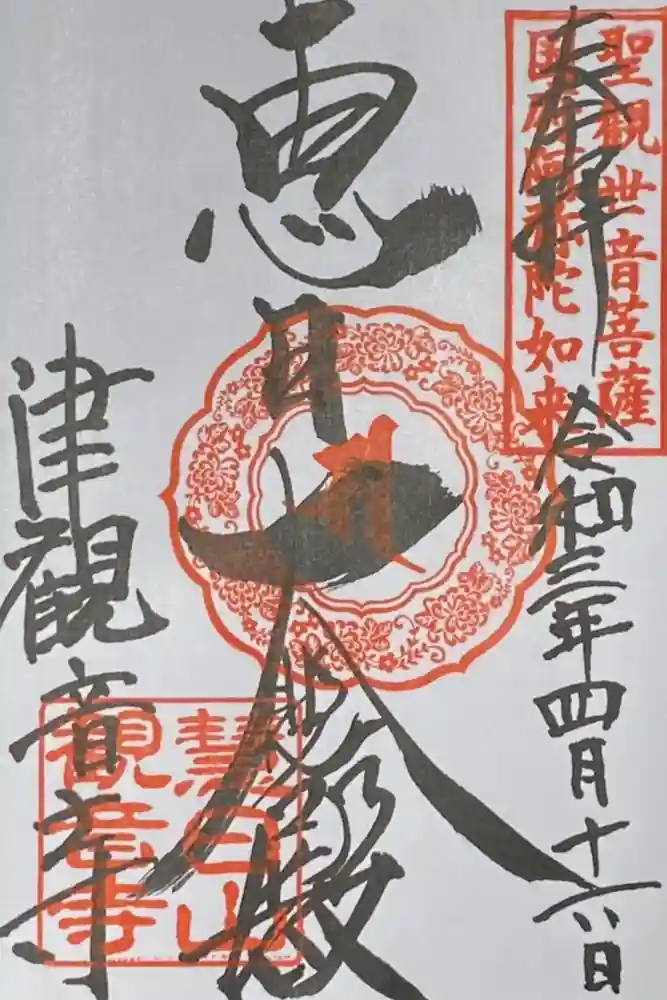 奉拝
令和三年四月十六日
聖観世音菩薩
国府阿弥陀如来
恵日大殿
津観音寺
慧日山
観音寺